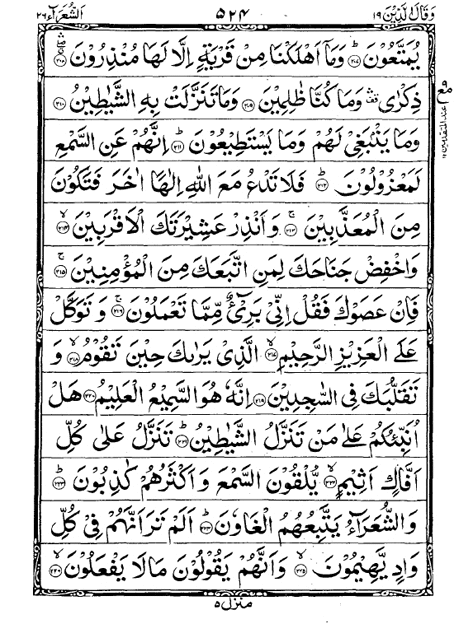 وَقَالَ الَّذِيْنَ ١٩ ٥٢٤ اَلشُّعَرَآء ٢٦
يُمَتَّعُوْنَ ؕ۝٢٠٧ وَمَاۤ اَهْلَكْنَا مِنْ قَرْيَةٍ اِلَّا لَهَا مُنْذِرُوْنَ ۝٢٠٨
ذِكْرٰى ۛ وَمَا كُنَّا ظٰلِمِيْنَ ۝٢٠٩ وَمَا تَنَزَّلَتْ بِهِ الشَّيٰطِيْنُ ۝٢١٠
وَمَا يَنْۢبَغِىْ لَهُمْ وَمَا يَسْتَطِيْعُوْنَ ؕ۝٢١١ اِنَّهُمْ عَنِ السَّمْعِ
لَمَعْزُوْلُوْنَ ؕ۝٢١٢ فَلَا تَدْعُ مَعَ اللّٰهِ اِلٰهًا اٰخَرَ فَتَكُوْنَ
مِنَ الْمُعَذَّبِيْنَ ۚ۝٢١٣ وَاَنْذِرْ عَشِيْرَتَكَ الْاَقْرَبِيْنَ ۙ۝٢١٤
وَاخْفِضْ جَنَاحَكَ لِمَنِ اتَّبَعَكَ مِنَ الْمُؤْمِنِيْنَ ۚ۝٢١٥
فَاِنْ عَصَوْكَ فَقُلْ اِنِّىْ بَرِىْٓءٌ مِّمَّا تَعْمَلُوْنَ ۚ۝٢١٦ وَتَوَكَّلْ
عَلَى الْعَزِيْزِ الرَّحِيْمِ ۙ۝٢١٧ الَّذِىْ يَرٰىكَ حِيْنَ تَقُوْمُ ۙ۝٢١٨ وَ
تَقَلُّبَكَ فِى السّٰجِدِيْنَ ۝٢١٩ اِنَّهٗ هُوَ السَّمِيْعُ الْعَلِيْمُ ۝٢٢٠ هَلْ
اُنَبِّئُكُمْ عَلٰى مَنْ تَنَزَّلُ الشَّيٰطِيْنُ ؕ۝٢٢١ تَنَزَّلُ عَلٰى كُلِّ
اَفَّاكٍ اَثِيْمٍ ۙ۝٢٢٢ يُّلْقُوْنَ السَّمْعَ وَاَكْثَرُهُمْ كٰذِبُوْنَ ؕ۝٢٢٣
وَالشُّعَرَآءُ يَتَّبِعُهُمُ الْغَاوٗنَ ؕ۝٢٢٤ اَلَمْ تَرَ اَنَّهُمْ فِىْ كُلِّ
وَادٍ يَّهِيْمُوْنَ ۙ۝٢٢٥ وَاَنَّهُمْ يَقُوْلُوْنَ مَا لَا يَفْعَلُوْنَ ۙ۝٢٢٦
منزل ٥